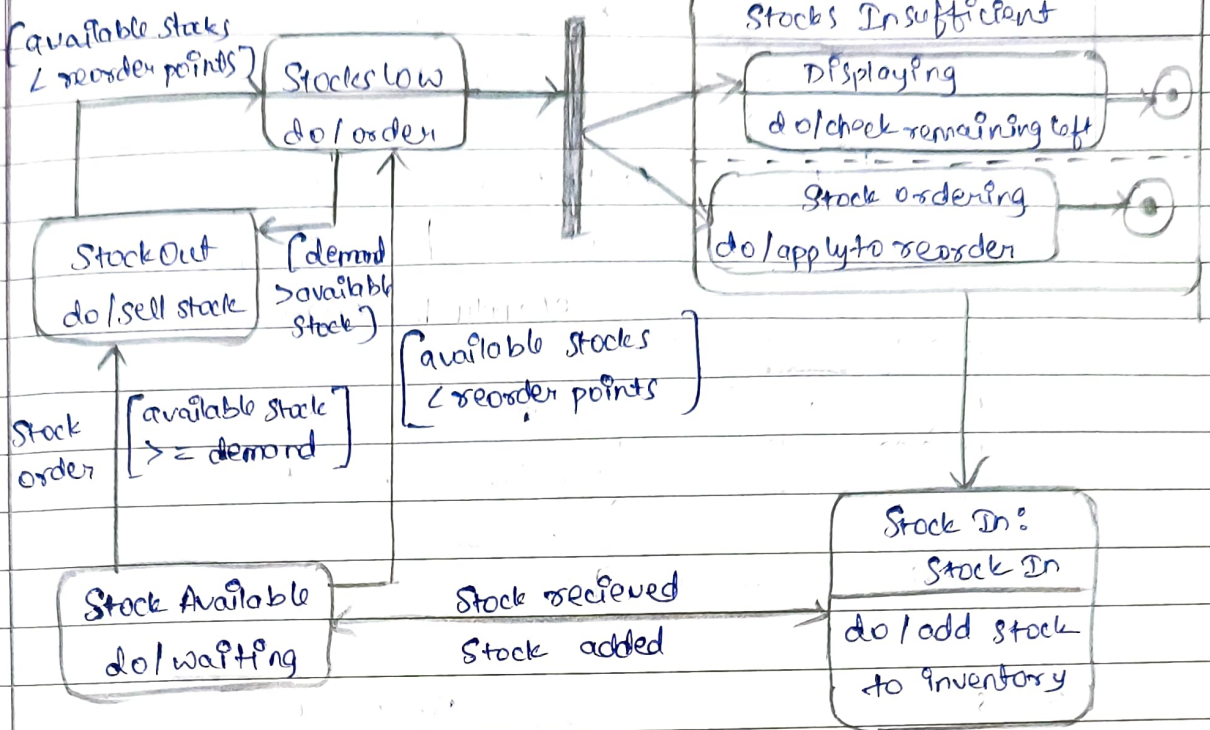 [available stocks
< reorder points]
Stocks low
do/order
Stocks Insufficient
Displaying
do/check remaining left
Stock ordering
do/apply to reorder
Stock Out
do/sell stock
[demand
>available
stock]
[available stocks
< reorder points]
Stock
order
[available stock
>= demand]
Stock Available
do/waiting
Stock recieved
Stock added
Stock In:
Stock In
do/add stock
to inventory